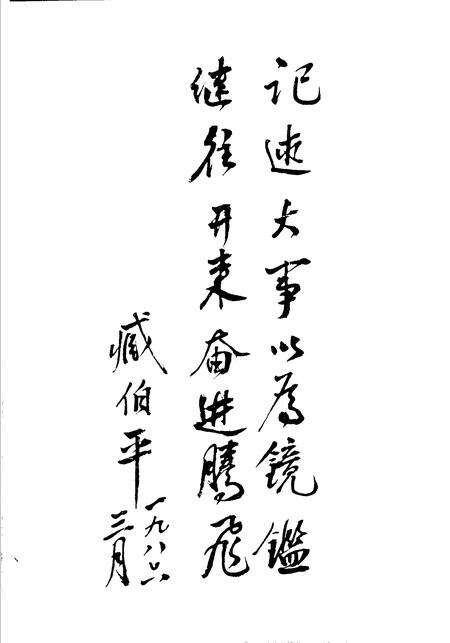 记述大事以为镜鑑
继往开来奋进腾飞
臧伯平
一九八六
三月